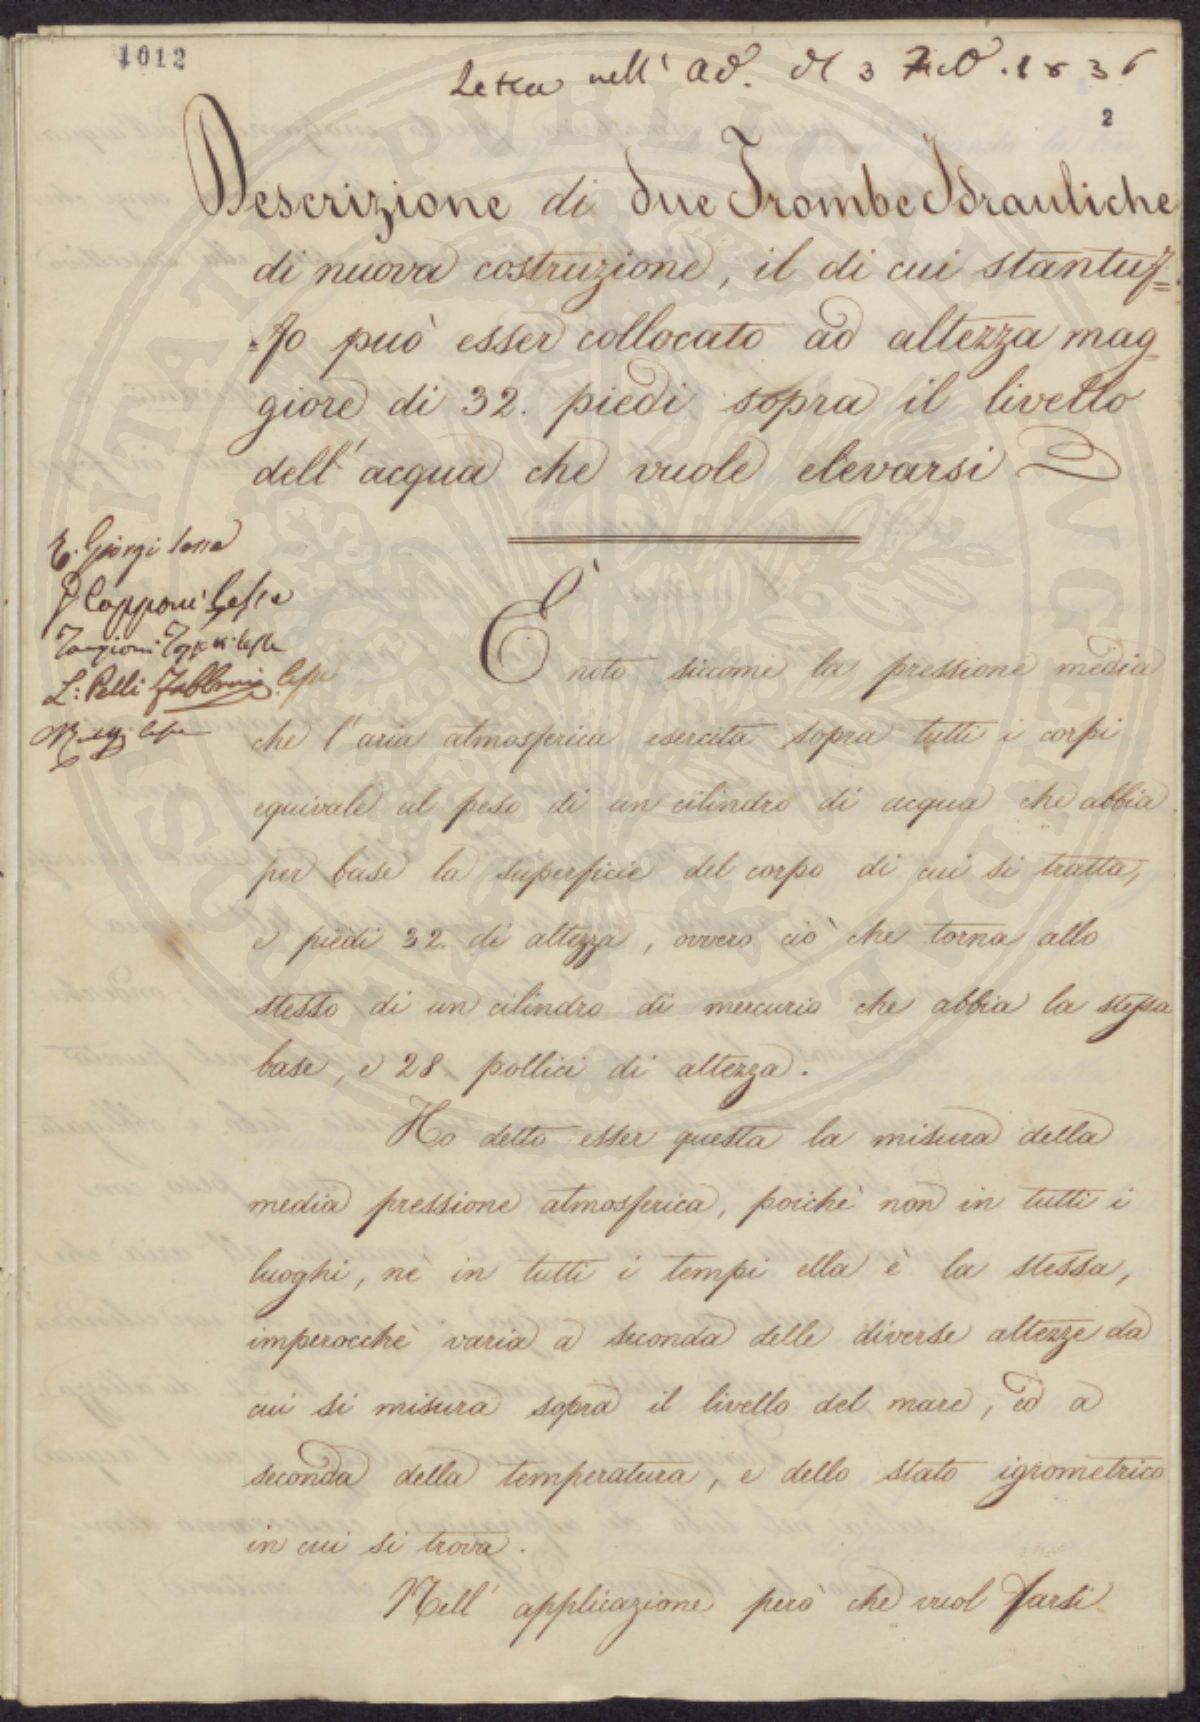 1012
Letta nell' Ad. del 3 Feb. 1836
2
Descrizione di due Trombe Idrauliche
di nuova costruzione, il di cui stantuf=
=fo può esser collocato ad altezza mag-
giore di 32. piedi sopra il livello
dell' acqua che vuole elevarsi
E. Giorgi
G Capponi lesse
Targioni Tozzetti lesse
L: Pelli Fabbroni lesse
lesse
È noto siccome la pressione media
che l'aria atmosferica esercita sopra tutti i corpi
equivale al peso di un cilindro di acqua che abbia
per base la superficie del corpo di cui si tratta,
e piedi 32. di altezza, ovvero ciò che torna allo
stesso di un cilindro di mercurio che abbia la stessa
base, e 28 pollici di altezza.
Ho detto esser questa la misura della
media pressione atmosferica, poichè non in tutti i
luoghi, nè in tutti i tempi ella è la stessa,
imperocchè varia a seconda delle diverse altezze da
cui si misura sopra il livello del mare, ed a
seconda della temperatura, e dello stato igrometrico
in cui si trova.
Nell' applicazione però che vuol farsi